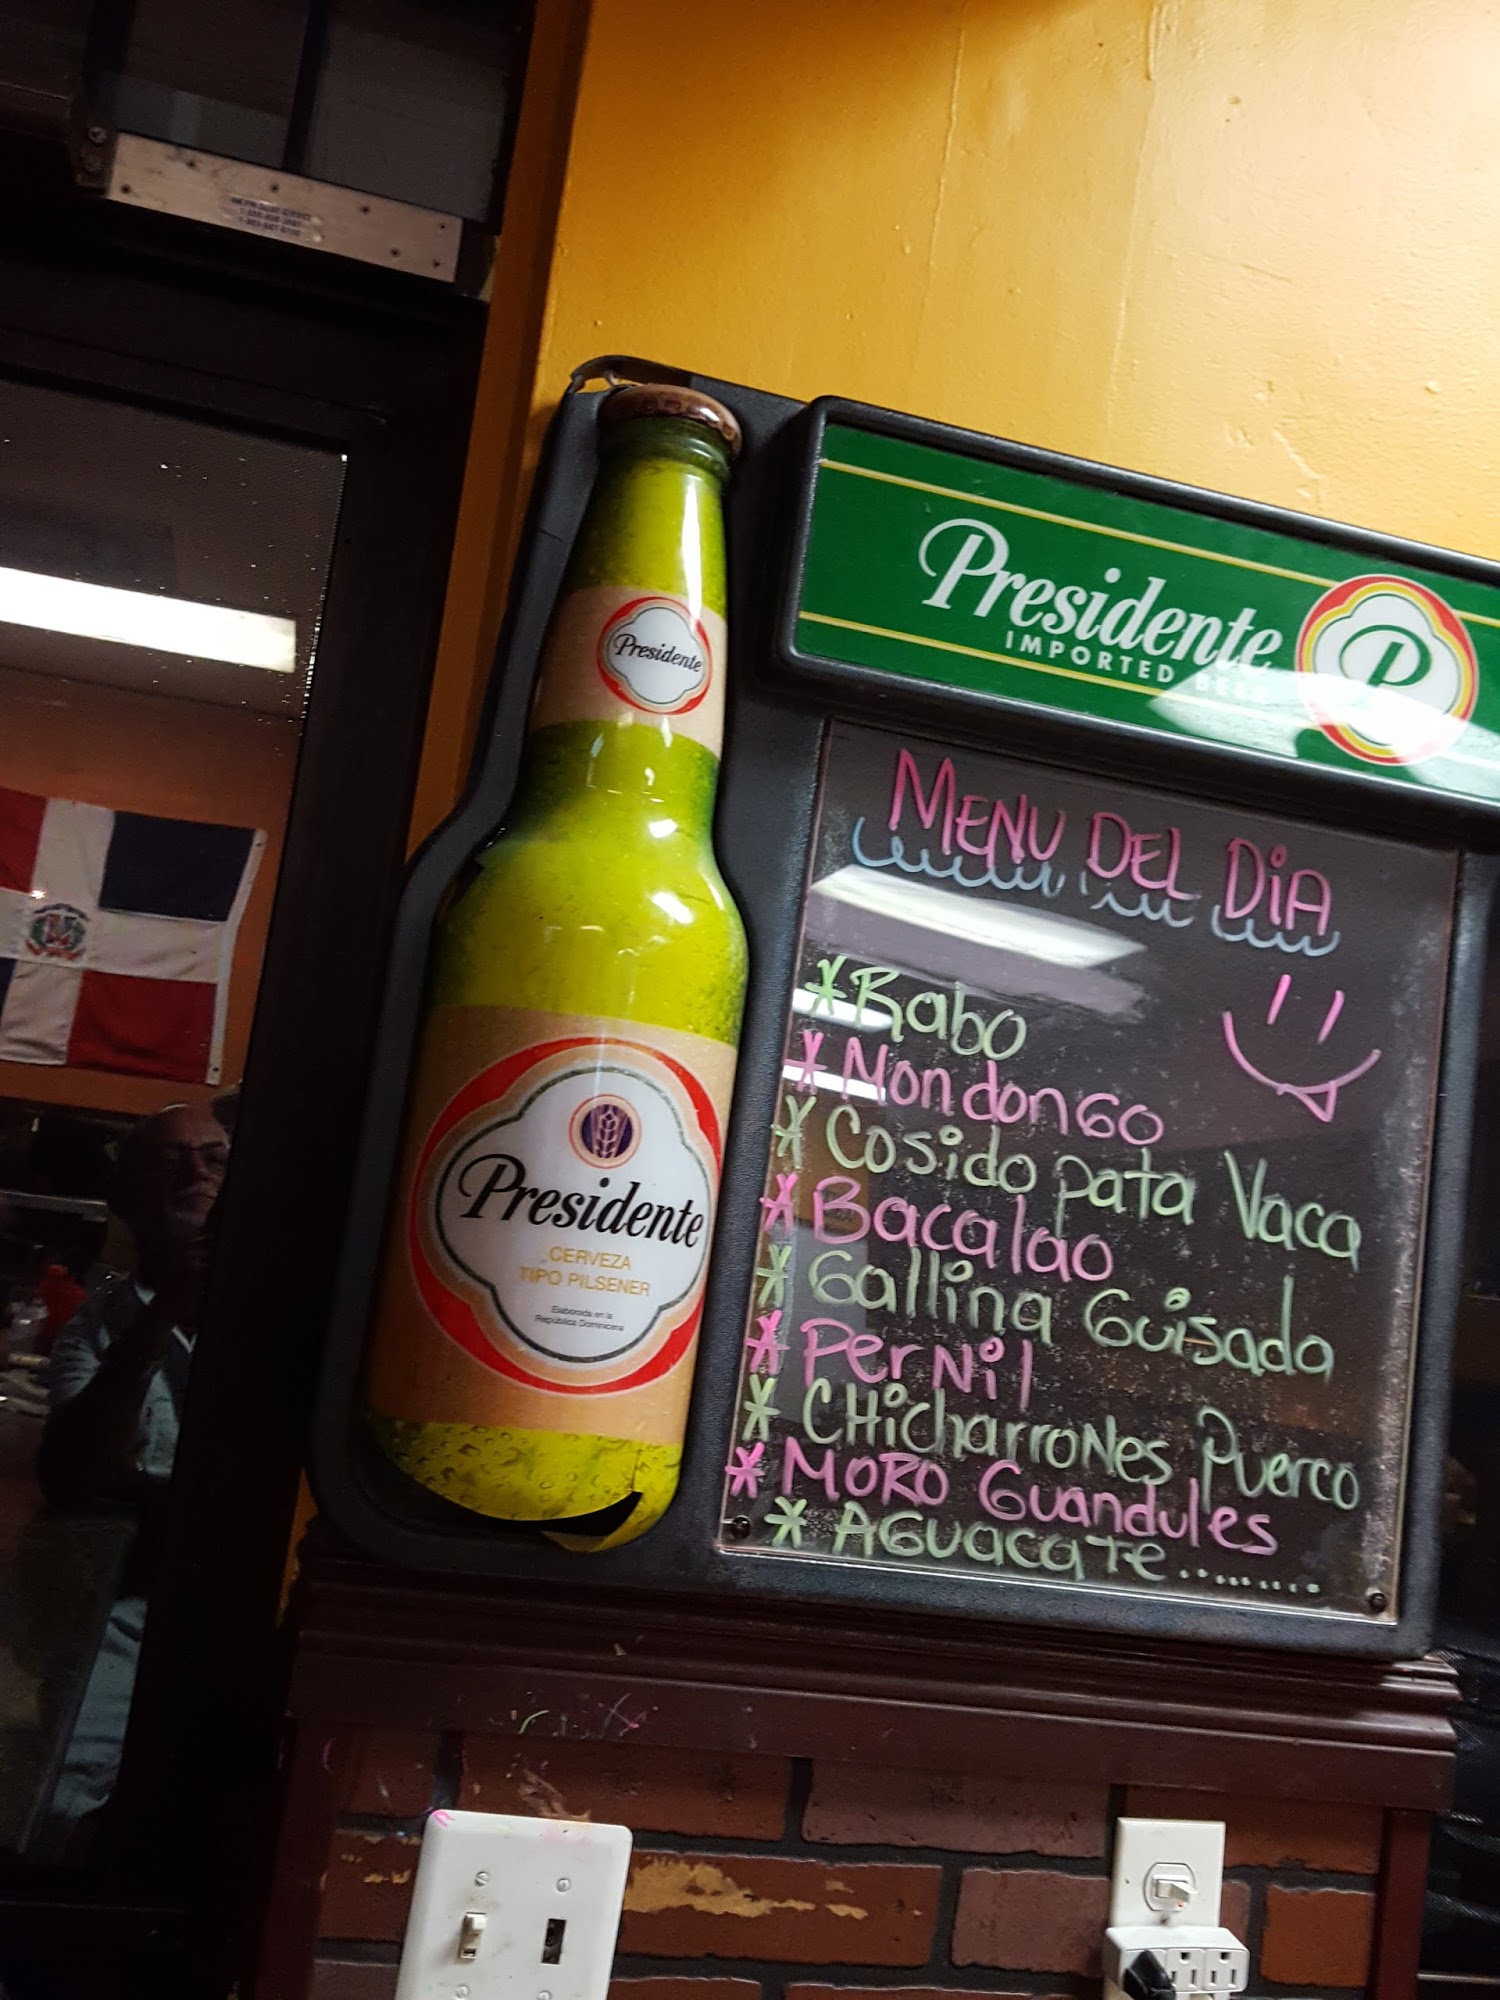 Presidente
Presidente
IMPORTED BEER
P
MENU DEL DiA
*Rabo
*Mondongo
*Cosido pata Vaca
*Bacalao
*Gallina Guisada
*PerNil
*CHicharroNes Puerco
*MORO Guandules
*AGuacate.........
Presidente
CERVEZA
TIPO PILSENER
Elaborada en la
República Dominicana